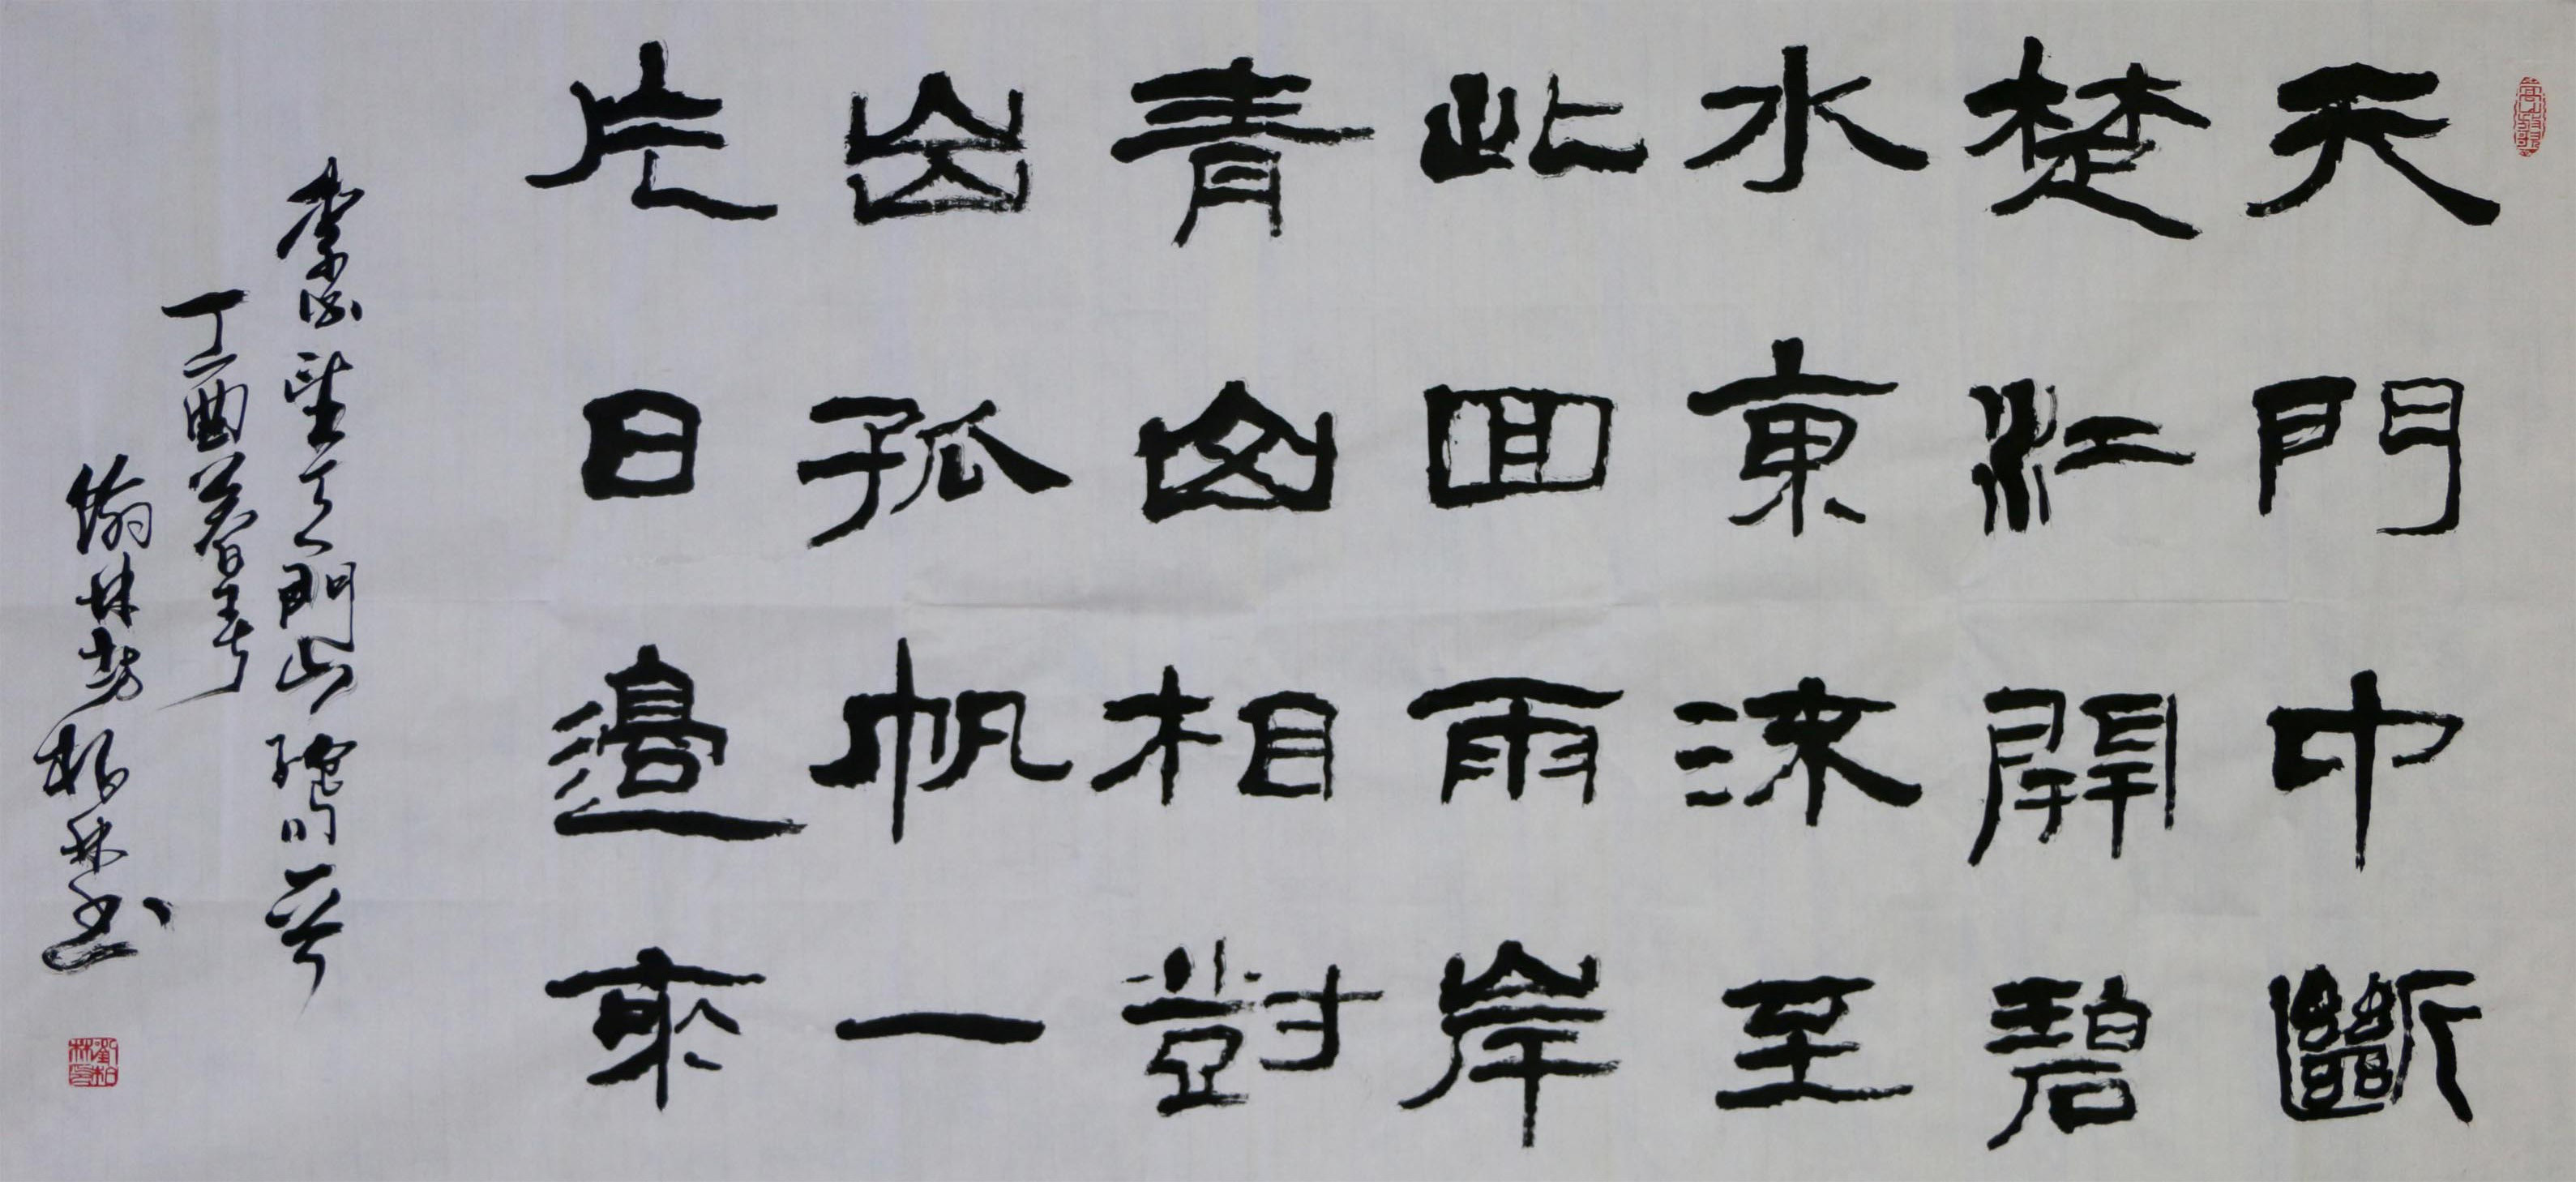 天門中斷
楚江開碧
水東流至
此回兩岸
青山相對
出孤帆一
片日邊來
李白望天門山絕句一首
丁酉暮春
翰林坊柏林書
劉柏林印